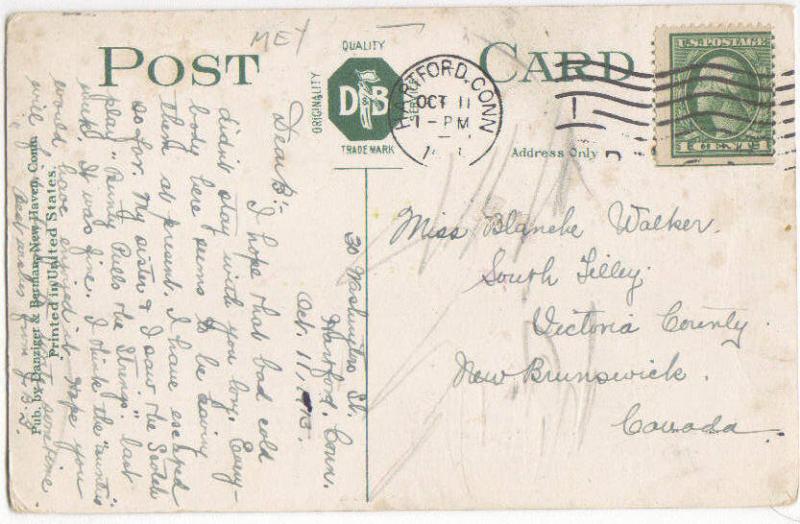 MEY
POST CARD
QUALITY
ORIGINALITY
D B
SERVICE
TRADE MARK
HARTFORD, CONN
OCT 11
1-PM
U.S. POSTAGE
Address Only
30 Washington St.
Hartford, Conn.
Oct. 11,
Dear B:-
I hope that bad cold
didn't stay with you long. Every-
body here seems to be having
them at present. I have escaped
so far. My sister & I saw the Scotch
play "Bunty Pulls the Strings" last
week. It was fine. I think the "aunties"
would have enjoyed it. Hope you
will
sometime
Best wishes from
Pub. by Danziger & Berman, New Haven, Conn.
Printed in United States.
Miss Blanche Walker.
South Tilley.
Victoria County.
New Brunswick.
Canada.